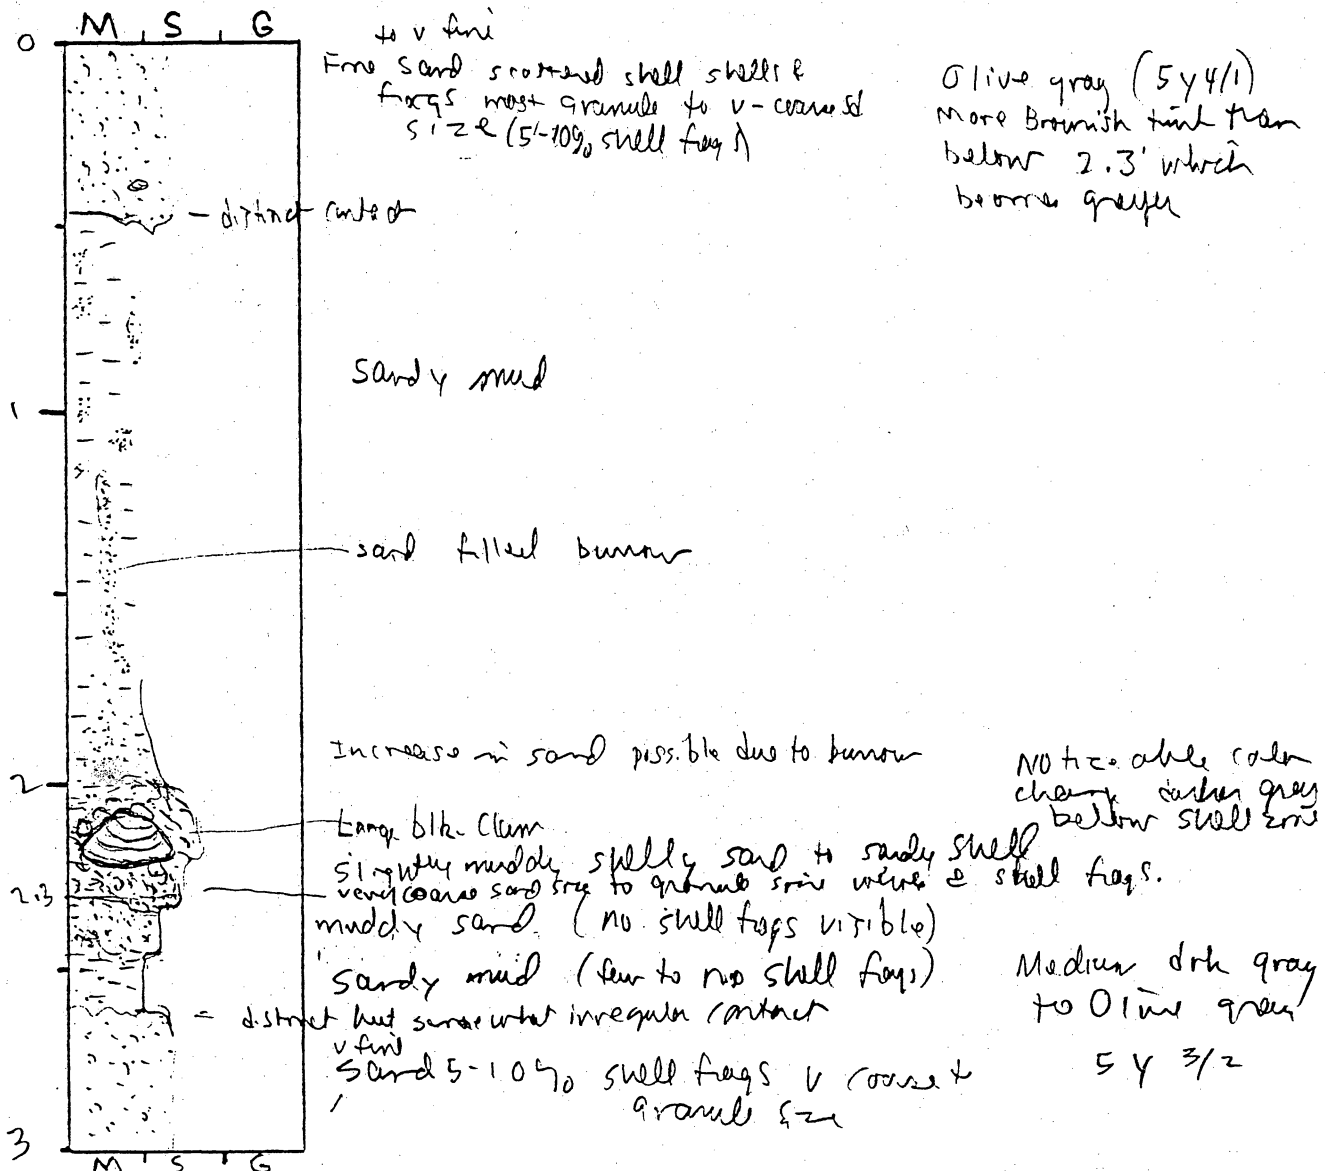 M S G
0
to v fine
Fine sand scattered shell shells &
frags most granule to v-coarse sd
size (5-10% shell frag)
Olive gray (5y4/1)
More Brownish tint than
below 2.3' which
becomes grayer
- distinct contact
sandy mud
1
sand filled burrow
Increase in sand possible due to burrow
2
Noticeable color
change darker gray
below shell zone
Large blk. Clam
Slightly muddy shelly sand to sandy shell
2.3
very coarse sand size to granule size & shell frags.
muddy sand. (no shell frags visible)
Sandy mud (few to no shell frags)
Medium drk gray
to Olive gray
5 Y 3/2
- distinct but somewhat irregular contact
v fine
Sand 5-10% shell frags v coarse to
granule size
3
M S G